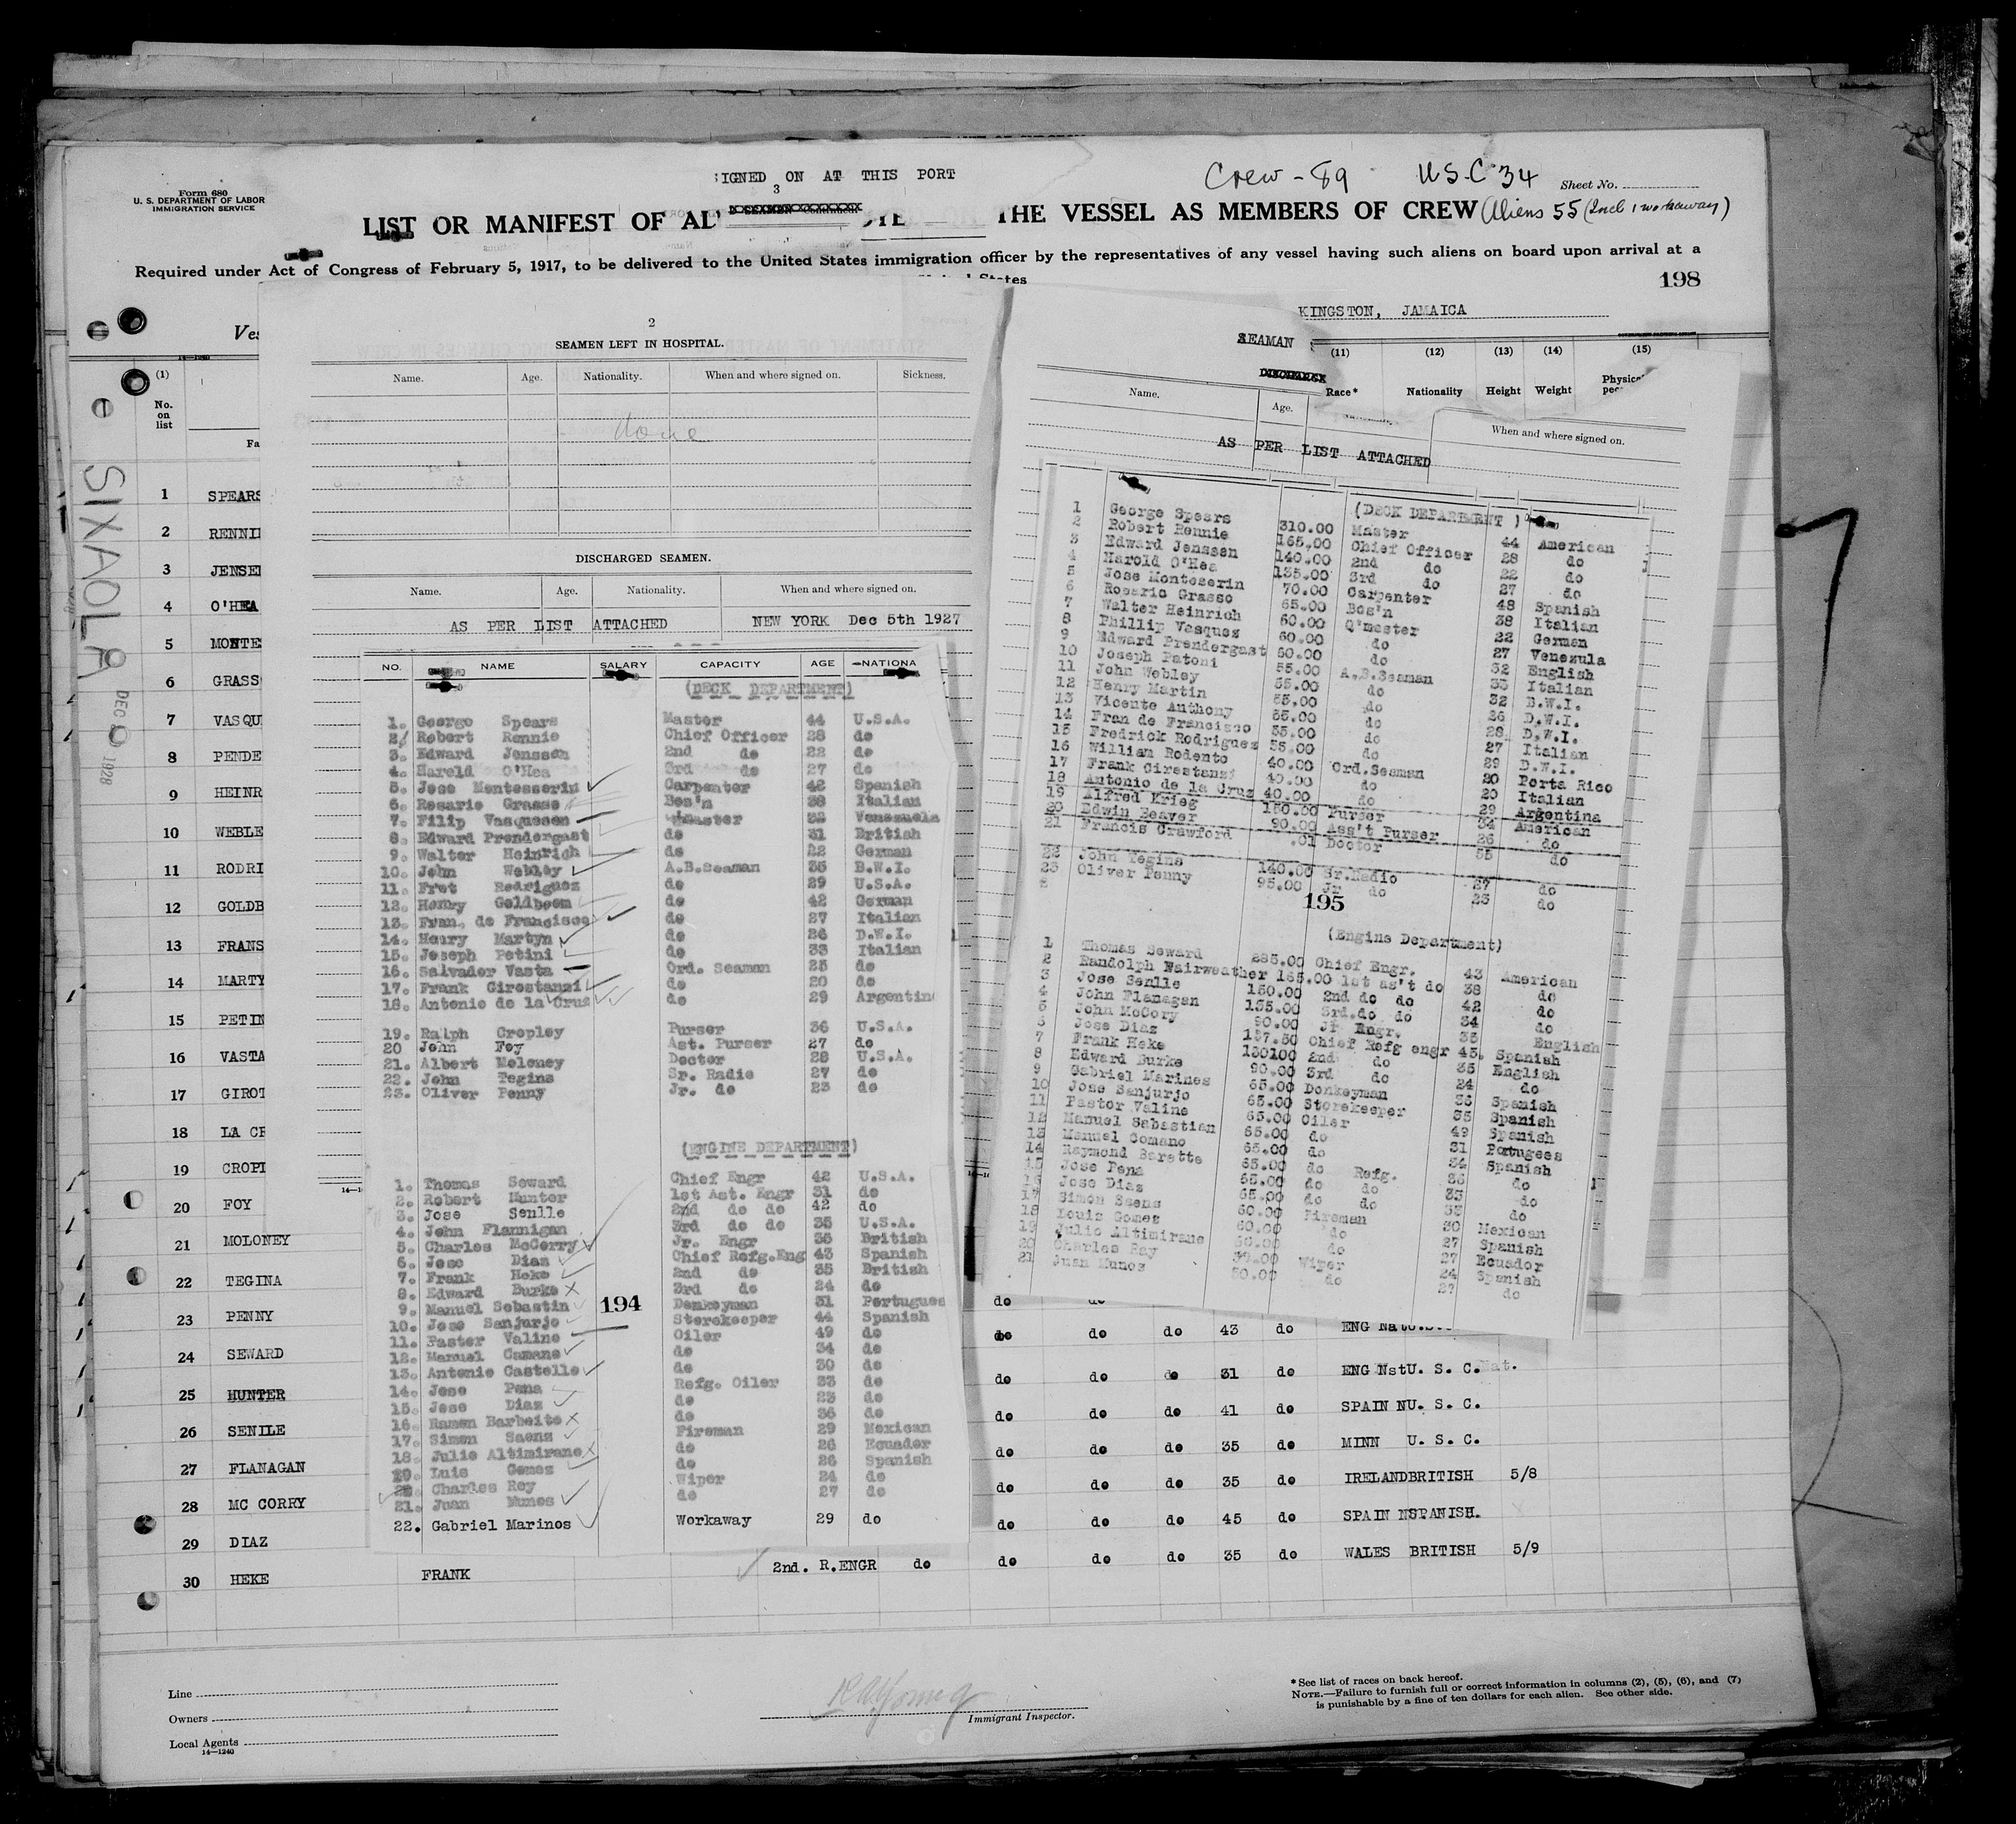 SIGNED ON AT THIS PORT
3
Crew - 89 U.S.C 34
Sheet No.
Form 680
U. S. DEPARTMENT OF LABOR
IMMIGRATION SERVICE
LIST OR MANIFEST OF AL THE VESSEL AS MEMBERS OF CREW
Aliens 55 (Incl 1 workaway)
Required under Act of Congress of February 5, 1917, to be delivered to the United States immigration officer by the representatives of any vessel having such aliens on board upon arrival at a
198
KINGSTON, JAMAICA
Ves
14—1240
(1)
No. on list
Fa
SIXAOLA
DEC 1928
1 SPEARS
2 RENNI
3 JENSE
4 O'HEA
5 MONTE
6 GRASS
7 VASQU
8 PENDE
9 HEINR
10 WEBLE
11 RODRI
12 GOLDB
13 FRANS
14 MARTY
15 PETIN
16 VASTA
17 GIROT
18 LA CR
19 CROPL
20 FOY
21 MOLONEY
22 TEGINA
23 PENNY
24 SEWARD
25 HUNTER
26 SENILE
27 FLANAGAN
28 MC CORRY
29 DIAZ
30 HEKE FRANK 2nd. R.ENGR do do do do 35 do WALES BRITISH 5/9
2
SEAMEN LEFT IN HOSPITAL.
Name. Age. Nationality. When and where signed on. Sickness.
None
DISCHARGED SEAMEN.
Name. Age. Nationality. When and where signed on.
AS PER LIST ATTACHED NEW YORK Dec 5th 1927
NO. NAME SALARY CAPACITY AGE NATIONA
(DECK DEPARTMENT)
1. George Spears Master 44 U.S.A.
2. Robert Rennie Chief Officer 28 do
3. Edward Jenssen 2nd do 22 do
4. Harold O'Hea 3rd do 27 do
5. Jose Montesserin Carpenter 42 Spanish
6. Rosario Grasso Bos'n 38 Italian
7. Filip Vasquesen Q'master 32 Venezuela
8. Edward Prendergast do 31 British
9. Walter Heinrich do 22 German
10. John Webley A.B.Seaman 35 B.W.I.
11. Fret Rodriguez do 29 U.S.A.
12. Henry Goldboom do 42 German
13. Fran. de Francisco do 27 Italian
14. Henry Martyn do 26 D.W.I.
15. Joseph Petini do 33 Italian
16. Salvador Vasta Ord. Seaman 25 do
17. Frank Girostanzi do 20 do
18. Antonio de la Cruz do 29 Argentin
19. Ralph Cropley Purser 36 U.S.A.
20 John Foy Ast. Purser 27 do
21. Albert Moloney Doctor 28 U.S.A.
22. John Tegins Sr. Radio 27 do
23. Oliver Penny Jr. do 23 do
(ENGINE DEPARTMENT)
1. Thomas Seward Chief Engr 42 U.S.A.
2. Robert Hunter 1st Ast. Engr 31 do
3. Jose Senlle 2nd do do 42 do
4. John Flannigan 3rd do do 35 U.S.A.
5. Charles McCorry Jr. Engr 35 British
6. Jose Dias Chief Refg.Eng 43 Spanish
7. Frank Heke 2nd do 35 British
8. Edward Burke 3rd do 24 do
9. Manuel Sebastin Donkeyman 31 Portugues
194
10. Jose Sanjurjo Storekeeper 44 Spanish
11. Paster Valine Oiler 49 do
12. Manuel Camano do 34 do
13. Antonio Castello do 30 do
14. Jose Pena Refg. Oiler 33 do
15. Jose Diaz do 23 do
16. Ramon Barbeito do 36 do
17. Simon Saens Fireman 29 Mexican
18. Julio Altimirano do 26 Ecuador
Luis Gomez do 26 Spanish
Charles Roy Wiper 24 do
21. Juan Munos do 27 do
22. Gabriel Marinos Workaway 29 do
SEAMAN
(11) (12) (13) (14) (15)
DISCHARGE
Race* Nationality Height Weight
Name. Age. When and where signed on.
AS PER LIST ATTACHED
(DECK DEPARTMENT)
1 George Spears 310.00 Master 44 American
2 Robert Rennie 165.00 Chief Officer 28 do
3 Edward Jenssen 140.00 2nd do 22 do
4 Harold O'Hea 135.00 3rd do 27 do
5 Jose Monteserin 70.00 Carpenter 48 Spanish
6 Rosario Grasso 65.00 Bos'n 38 Italian
7 Walter Heinrich 60.00 Q'master 22 German
8 Phillip Vasquez 60.00 do 27 Venezula
9 Edward Prendergast 60.00 do 32 English
10 Joseph Patoni 55.00 A.B.Seaman 33 Italian
11 John Webley 55.00 do 32 B.W.I.
12 Henry Martin 55.00 do 26 D.W.I.
13 Vicente Anthony 55.00 do 28 D.W.I.
14 Fran de Francisco 55.00 do 27 Italian
15 Fredrick Rodriguez 55.00 do 29 D.W.I.
16 William Rodento 40.00 Ord.Seaman 20 Porto Rico
17 Frank Girostanzi 40.00 do 20 Italian
18 Antonio de la Cruz 40.00 do 29 Argentina
19 Alfred Krieg 150.00 Purser 34 American
20 Edwin Beaver 90.00 Ass't Purser 26 do
21 Francis Crawford .01 Doctor 55 do
22 John Tegins 140.00 Sr.Radio 27 do
23 Oliver Penny 95.00 Jr do 23 do
195
(Engine Department)
1 Thomas Seward 285.00 Chief Engr. 43 American
2 Randolph Fairweather 165.00 1st as't do 38 do
3 Jose Senlle 150.00 2nd do do 42 do
4 John Flanagan 135.00 3rd.do do 34 do
5 John McCory 90.00 Jr Engr. 35 English
Jose Diaz 157.50 Chief Refg engr 45. Spanish
7 Frank Heke 130100 2nd do 35 English
8 Edward Burke 90.00 3rd do 24 do
9 Gabriel Marines 65.00 Donkeyman 36 Spanish
10 Jose Sanjurjo 65.00 Storekeeper 35 Spanish
11 Pastor Valine 65.00 Oiler 49 Spanish
12 Manuel Sabastian 65.00 do 31 Portugees
13 Manuel Comano 65.00 do 34 Spanish
14 Raymond Barette 65.00 do Refg. 36 do
15 Jose Pena 65.00 do do 33 do
16 Jose Diaz 65.00 do do 33 do
17 Simon Saens 60.00 Fireman 30 Mexican
18 Louis Gomes 60.00 do 27 Spanish
19 Julio Altimirane 60.00 do 27 Ecuador
20 Charles Ray Wiper 24 Spanish
21 Juan Munos 50.00 do 27 do
do do
do do do 43 do ENG
do do do 31 do ENG Nst U. S. C.
do do do 41 do SPAIN N U. S. C.
do do do 35 do MINN U. S. C.
do do do 35 do IRELAND BRITISH 5/8
do do do 45 do SPAIN N SPANISH.
Line
Owners
Local Agents
14—1240
Immigrant Inspector.
*See list of races on back hereof.
NOTE.—Failure to furnish full or correct information in columns (2), (5), (6), and (7)
is punishable by a fine of ten dollars for each alien. See other side.